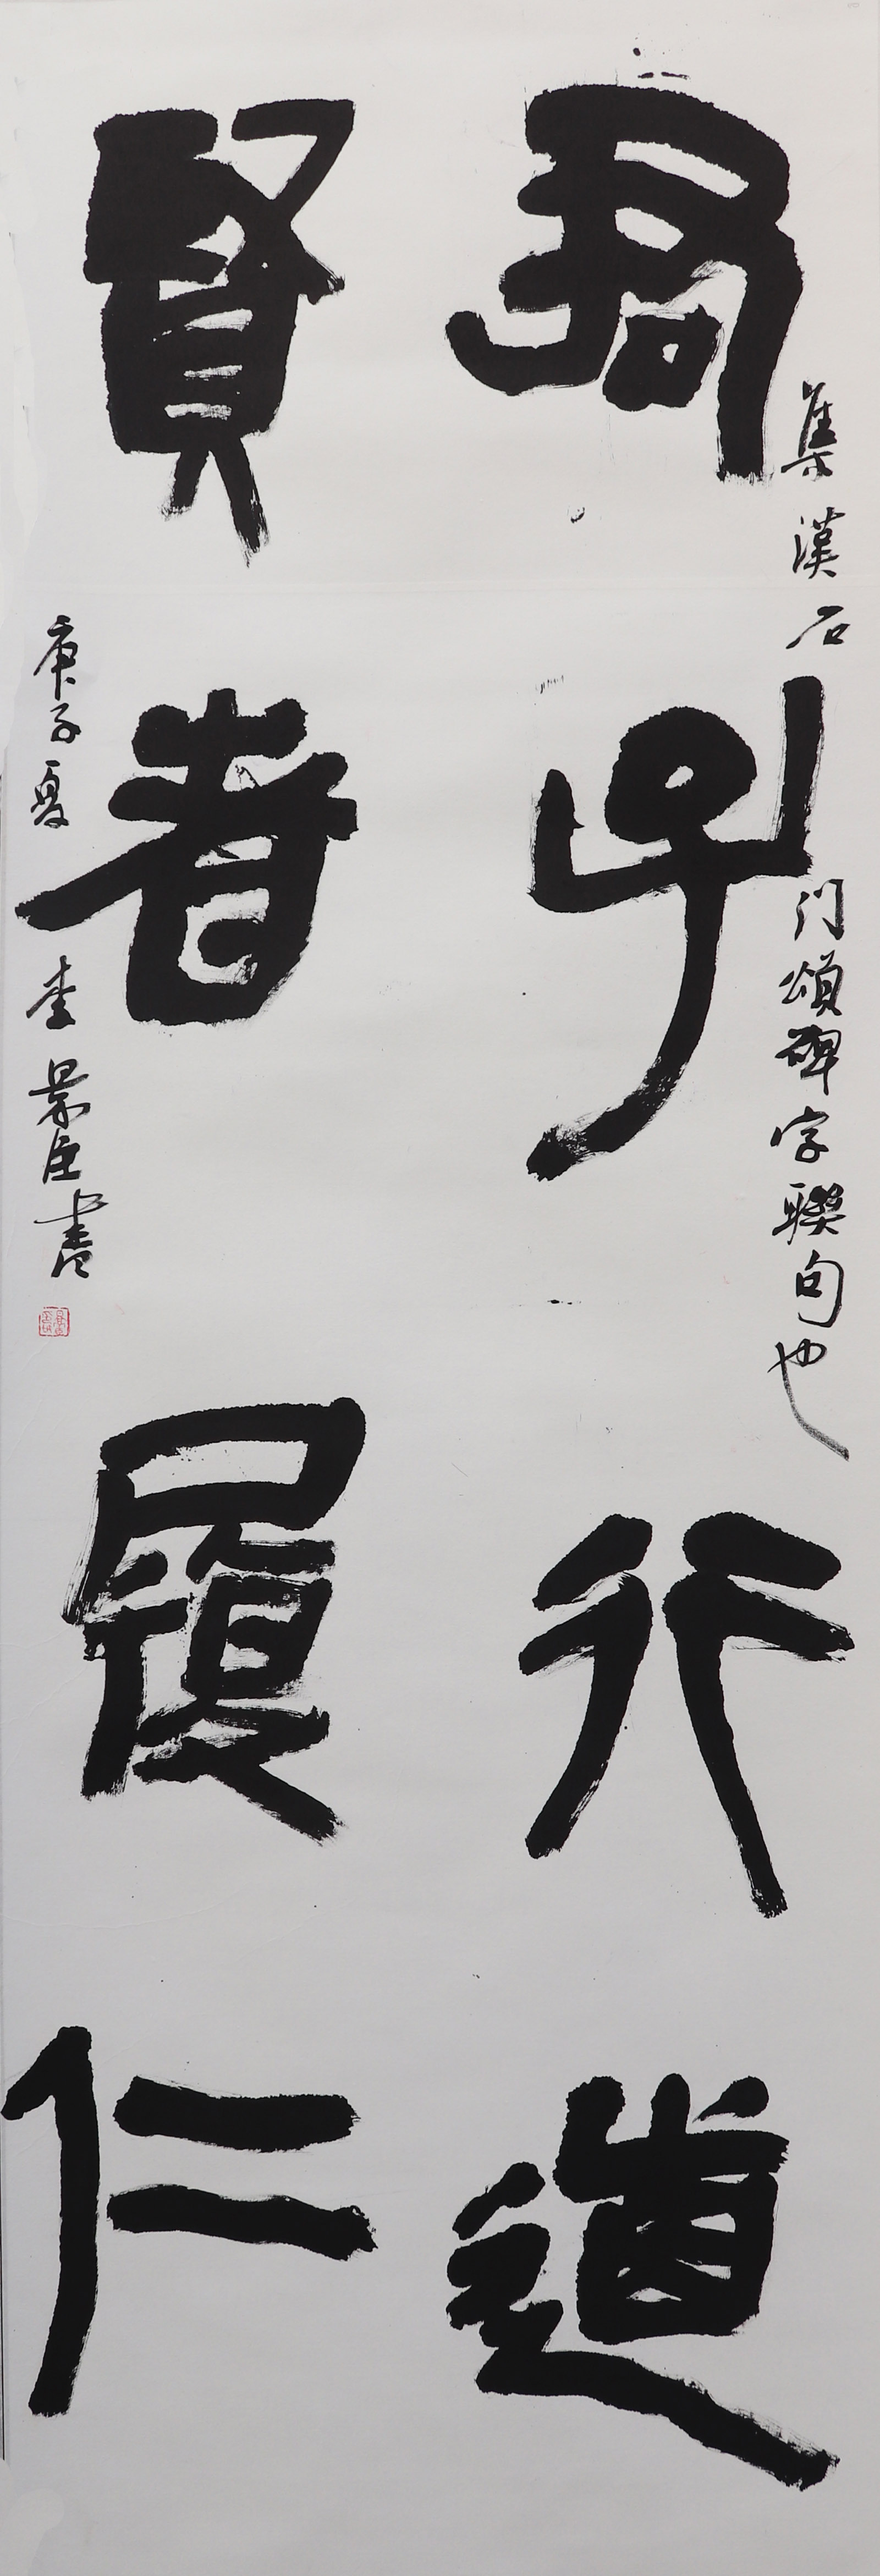 君子行道
賢者履仁
集漢石门頌碑字聯句也
庚子夏李景
書